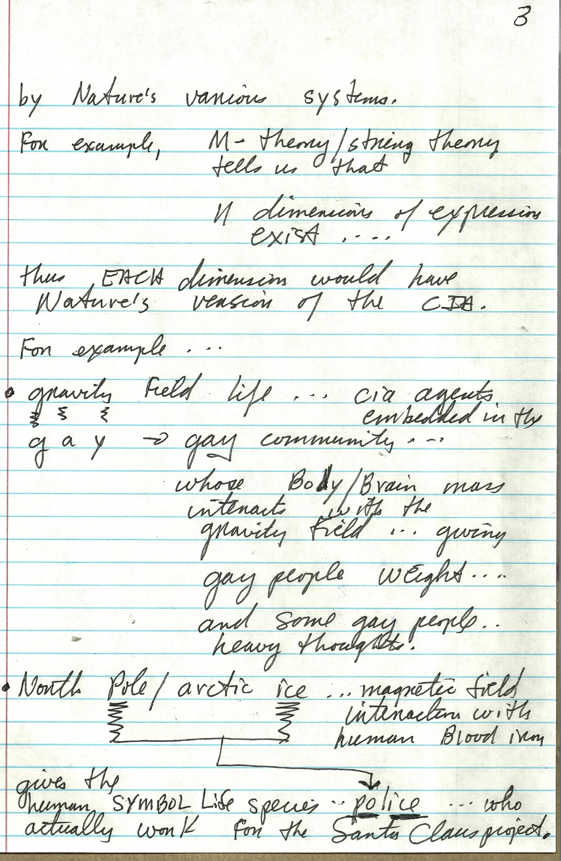 3
by Nature's various systems.
For example, M-theory/string theory
tells us that
11 dimensions of expression
exist ....
thus EACH dimension would have
Nature's version of the CIA.
For example ...
• gravity field life ... cia agents
embedded in the
g a y → gay community ...
whose Body/Brain mass
interacts with the
gravity field ... giving
gay people WEight....
and some gay people..
heavy thoughts.
• North Pole/arctic ice ... magnetic field
interaction with
human Blood iron
gives the
human SYMBOL Life species .. police ... who
actually work for the Santa Claus project.